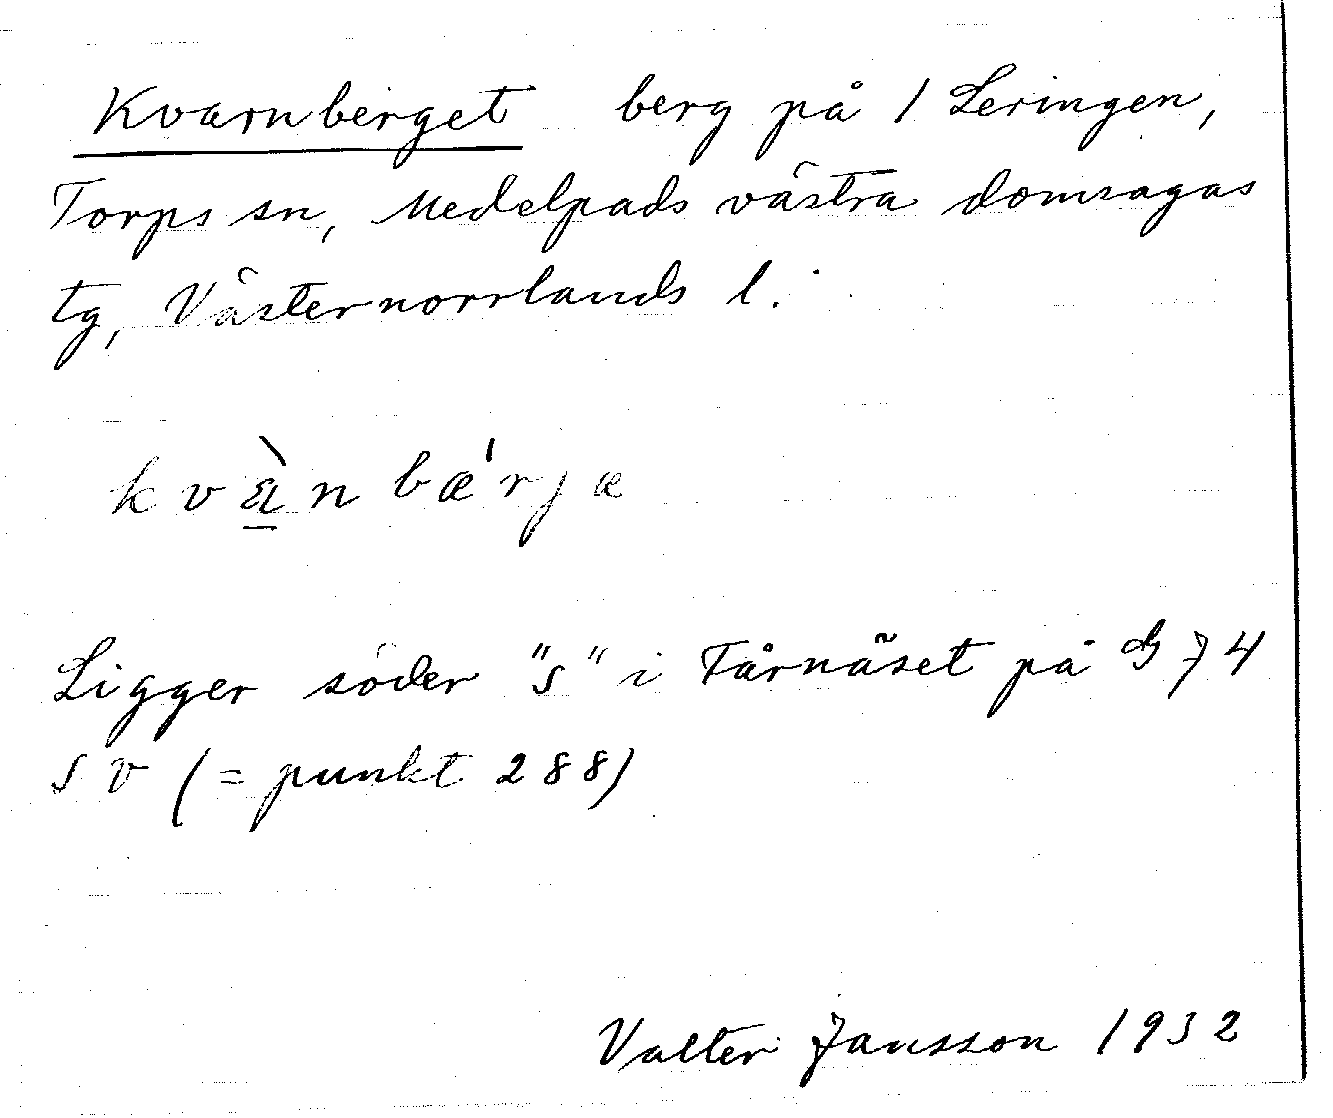 Kvarnberget berg på 1 Leringen,
Torps sn, Medelpads västra domsagas
tg, Västernorrlands l.
kvàn bæ'rjæ
Ligger söder "s" i Tårnäset på G 74
SV (= punkt 288)
Valter Jansson 1932